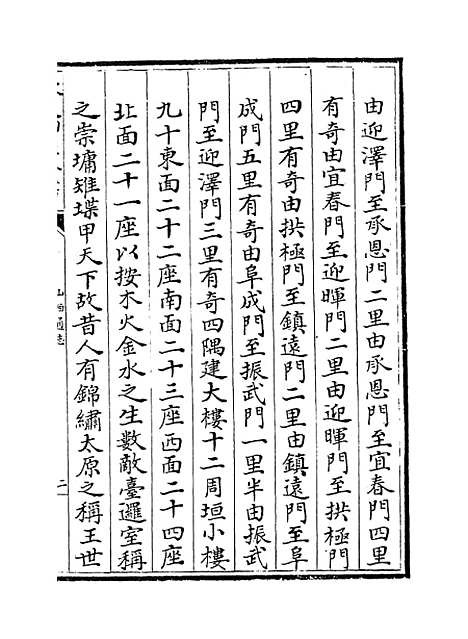 由迎澤門至承恩門二里由承恩門至宜春門四里
有奇由宜春門至迎暉門二里由迎暉門至拱極門
四里有奇由拱極門至鎮遠門二里由鎮遠門至阜
成門五里有奇由阜成門至振武門一里半由振武
門至迎澤門三里有奇四隅建大樓十二周垣小樓
九十東面二十二座南面二十三座西面二十四座
北面二十一座以按木火金水之生數敵臺邏室稱
之崇墉雉堞甲天下故昔人有錦繡太原之稱王世
山西通志
二